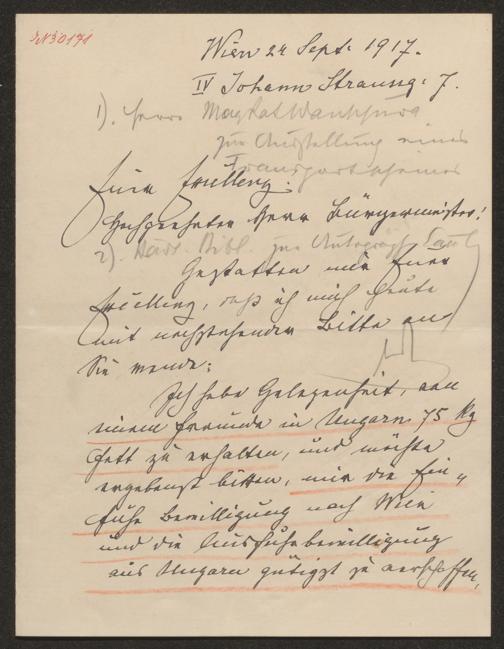 Wien 24 Sept. 1917.
IV Johann Straussg. 7.
1). Herrn
zur Ausstellung eines
Transportscheines
Euer Exzellenz.
Hochgeehrter Herr Bürgermeister!
2). Bibl. zur
Gestatten mir Euer
Exzellenz, daß ich mich heute
mit nachstehender Bitte an
Sie wende:
Ich habe Gelegenheit, von
einem Freunde in Ungarn 75 Kg
Fett zu erhalten, und möchte
ergebenst bitten, mir die Ein„
fuhr Bewilligung nach Wien
und die Ausfuhrbewilligung
aus Ungarn gütigst zu verschaffen,